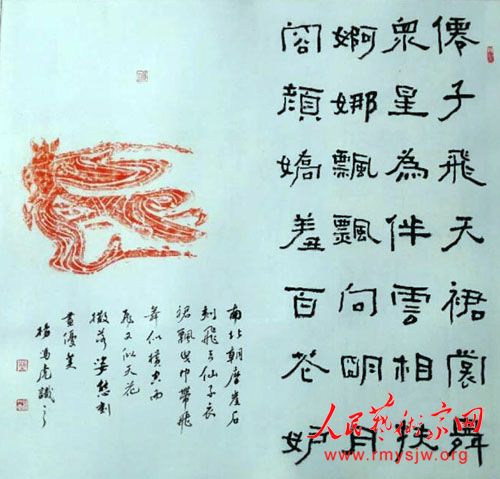 僊子飛天裙舞
衆星為伴雲相扶
婀娜飄飄向明月
容顔嬌羞百花妒
南北朝摩崖石
刻飛天仙子衣
裙飄與巾帶飛
舞似橫空雨
又似天花
撒落姿態刻
畫優美
虎識
人民藝術家网
www.rmysjw.org